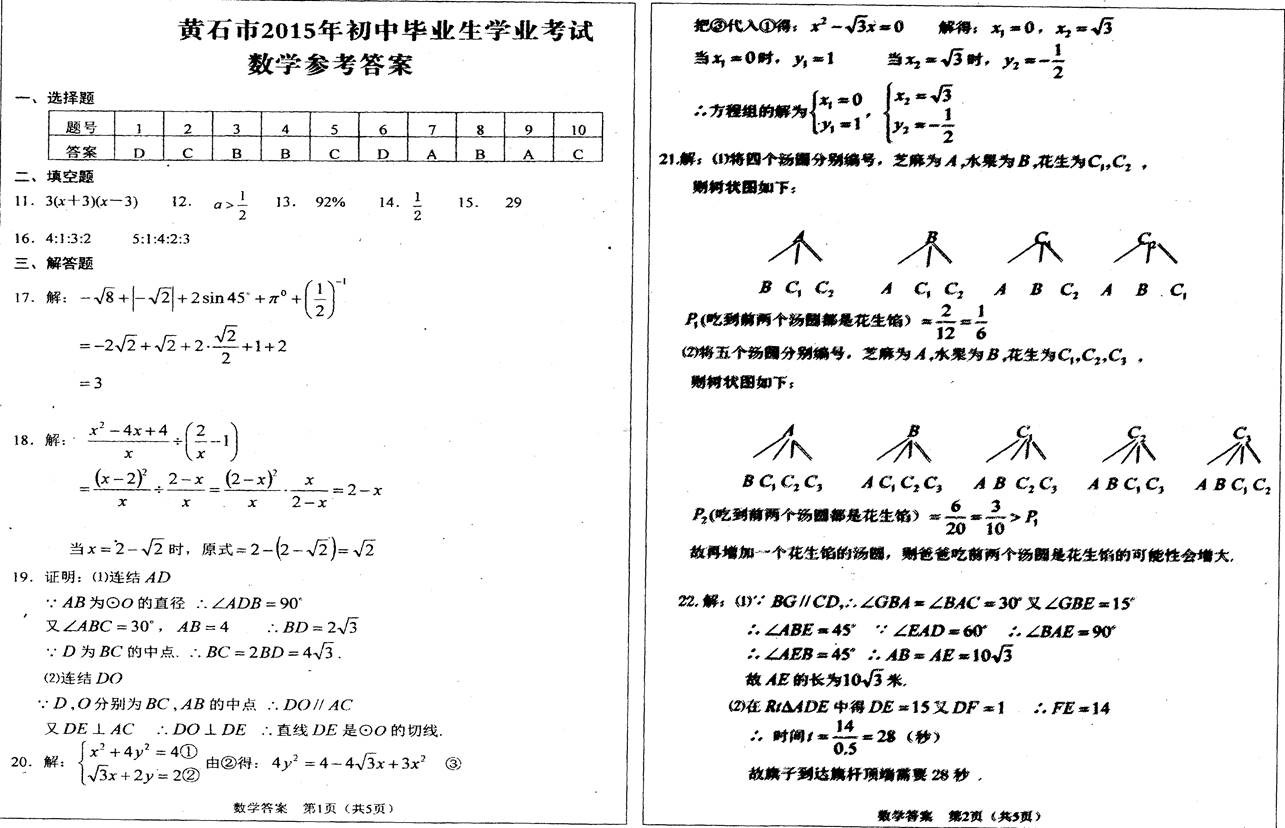 黄石市2015年初中毕业生学业考试
数学参考答案
一、选择题
题号 1 2 3 4 5 6 7 8 9 10
答案 D C B B C D A B A C
二、填空题
11. 3(x+3)(x−3) 12. a>1/2 13. 92% 14. 1/2 15. 29
16. 4:1:3:2 5:1:4:2:3
三、解答题
17. 解: −√8+|−√2|+2sin45°+π⁰+(1/2)⁻¹
=−2√2+√2+2·√2/2+1+2
=3
18. 解: (x²−4x+4)/x÷(2/x−1)
=(x−2)²/x÷(2−x)/x=(2−x)²/x·x/(2−x)=2−x
当x=2−√2时, 原式=2−(2−√2)=√2
19. 证明: ⑴连结AD
∵AB为⊙O的直径 ∴∠ADB=90°
又∠ABC=30°, AB=4 ∴BD=2√3
∵D为BC的中点. ∴BC=2BD=4√3.
⑵连结DO
∵D,O分别为BC,AB的中点 ∴DO//AC
又DE⊥AC ∴DO⊥DE ∴直线DE是⊙O的切线.
20. 解: {x²+4y²=4① √3x+2y=2② 由②得: 4y²=4−4√3x+3x² ③
数学答案 第1页(共5页)
把③代入①得: x²−√3x=0 解得: x₁=0, x₂=√3
当x₁=0时, y₁=1 当x₂=√3时, y₂=−1/2
∴方程组的解为{x₁=0 y₁=1, {x₂=√3 y₂=−1/2
21.解: ⑴将四个汤圆分别编号, 芝麻为A,水果为B,花生为C₁,C₂,
则树状图如下:
A B C₁ C₂
B C₁ C₂ A C₁ C₂ A B C₂ A B C₁
P₁(吃到前两个汤圆都是花生馅)=2/12=1/6
⑵将五个汤圆分别编号, 芝麻为A,水果为B,花生为C₁,C₂,C₃,
则树状图如下:
A B C₁ C₂ C₃
B C₁ C₂ C₃ A C₁ C₂ C₃ A B C₂ C₃ A B C₁ C₃ A B C₁ C₂
P₂(吃到前两个汤圆都是花生馅)=6/20=3/10>P₁
故再增加一个花生馅的汤圆, 则爸爸吃前两个汤圆是花生馅的可能性会增大.
22.解: ⑴∵BG//CD,∴∠GBA=∠BAC=30°又∠GBE=15°
∴∠ABE=45° ∵∠EAD=60° ∴∠BAE=90°
∴∠AEB=45° ∴AB=AE=10√3
故AE的长为10√3米.
⑵在Rt△ADE中得DE=15又DF=1 ∴FE=14
∴时间t=14/0.5=28(秒)
故旗子到达旗杆顶端需要28秒.
数学答案 第2页(共5页)